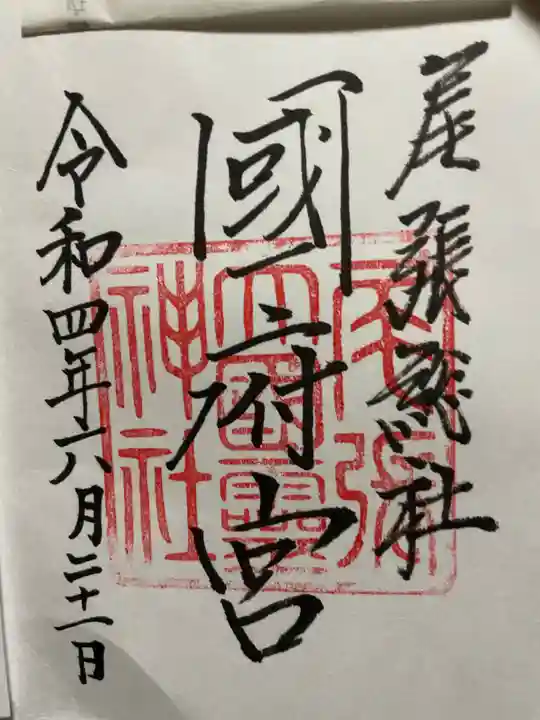 尾張総社
國府宮
令和四年六月二十一日
尾張大國霊神社